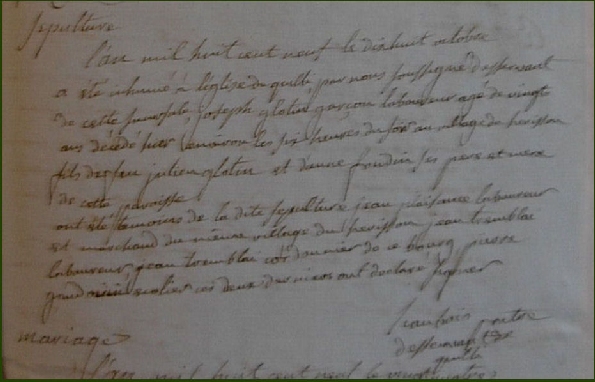 sepulture
l'an mil huit cent neuf le dixhuit octobre
a été inhumé à l'église de quilli par nous soussigné desservant
de cette succursale, joseph glotin garçon laboureur agé de vingt
ans décédé hier environ les six heures du soir au village du herisson
fils de feu julien glotin et d'anne ses pere et mere
de cette paroisse
ont été temoins de la dite sepulture jean plaisance laboureur
et marchand du même village du herisson jean tremblai
laboureur, jean tremblai de ce bourg pierre
ces deux derniers ont declaré signer
desservant de
quilli
mariage
l'an mil huit cent neuf le